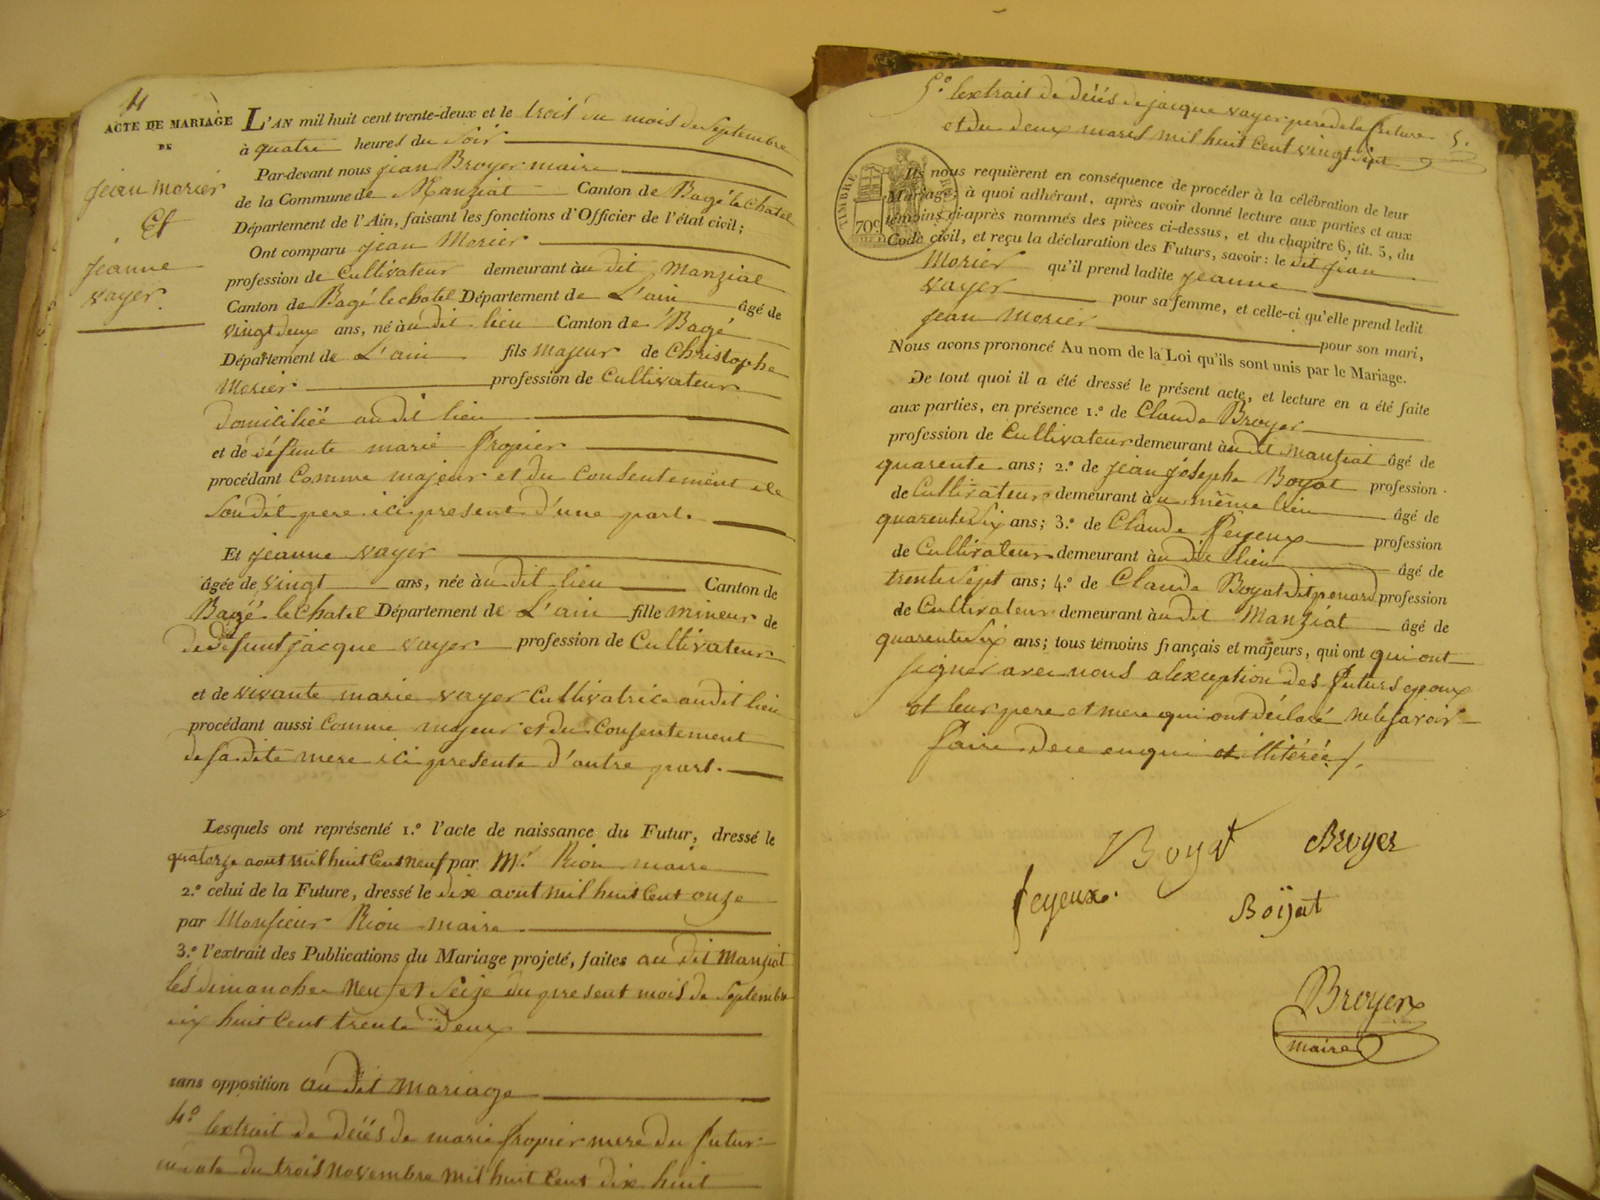 4
ACTE DE MARIAGE
DE
jean morier
Et
jeanne
vayer.
L'AN mil huit cent trente-deux et le trois du mois de Septembre
à quatre heures du Soir
Par-devant nous jean Broyer maire
de la Commune de Manziat Canton de Bagé le chatel
Département de l'Ain, faisant les fonctions d'Officier de l'état civil;
Ont comparu jean Morier
profession de Cultivateur demeurant àu dit Manziat
Canton de Bagé le chatel Département de L'ain âgé de
vingt deux ans, né àu dit lieu Canton de Bagé
Département de L'ain fils majeur de Christophe
Morier profession de Cultivateur
Domiciliée au dit lieu
et de défunte marie
procédant Comme majeur et du Consentement de
Sou dit pere ici present d'une part.
Et jeanne vayer
âgée de vingt ans, née àu dit lieu Canton de
Bagé le Chatel Département de L'ain fille mineur de
de défunt jacque vayer profession de Cultivateur
et de vivante marie vayer Cultivatrice audit lieu
procédant aussi Comme majeur et du Consentement
de sa dite mere ici presente d'autre part.
Lesquels ont représenté 1.º l'acte de naissance du Futur, dressé le
quatorze aout mil huit Cent neuf par Mr. Rion maire
2.º celui de la Future, dressé le dix aout mil huit Cent onze
par Monsieur Rion maire
3.º l'extrait des Publications du Mariage projeté, faites au dit Manziat
les dimanche Neuf et Seize du present mois de Septembre
huit Cent trente Deux
sans opposition au dit mariage
4º lextrait de déiés de marie mere du futur
du trois Novembre mil huit Cent dix huit
5º lextrait de déiés de jacque vayer pere de la future 5.
et du deux mars mil huit Cent vingt sept
TIMBRE
70c
Ils nous requièrent en conséquence de procéder à la célébration de leur
Mariage, à quoi adhérant, après avoir donné lecture aux parties et aux
témoins ci-après nommés des pièces ci-dessus, et du chapitre 6, tit. 5, du
Code civil, et reçu la déclaration des Futurs, savoir: le dit jean
Morier qu'il prend ladite jeanne
vayer pour sa femme, et celle-ci qu'elle prend ledit
jean Morier pour son mari,
Nous avons prononcé Au nom de la Loi qu'ils sont unis par le Mariage.
De tout quoi il a été dressé le présent acte, et lecture en a été faite
aux parties, en présence 1.º de Claude Broyer
profession de Cultivateur demeurant àu dit manziat âgé de
quarente ans; 2.º de jean joseph Boyat profession
de Cultivateur demeurant àu même lieu âgé de
quarente Six ans; 3.º de Claude Feyeux profession
de Cultivateur demeurant àu dit lieu âgé de
trente Sept ans; 4.º de Claude Boyat dit penard profession
de Cultivateur demeurant àu dit Manziat âgé de
quarente Six ans; tous témoins français et majeurs, qui ont qui ont
signer avec nous alexception des futurs epoux
et leur pere et mere qui ont déclaré ne le savoir
faire de ce enquis et illitérés.
Boyat Broyer
feyeux. Boÿat
Broyer
maire